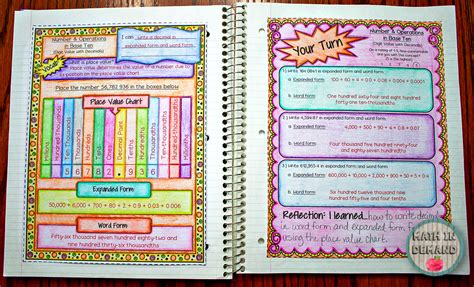 Number & Operations
in Base Ten
(Digit Value with Decimals)
I can write a decimal in
expanded form and word form.
Place value determines the value of a number due to
its position on the place value chart.
Place the number 56,782.936 in the boxes below
Place Value Chart
Millions
Hundred-Thousands
Ten-Thousands
Thousands
Hundreds
Tens
Ones
Decimal Point
Tenths
Hundredths
Thousandths
Ten-Thousandths
Hundred-Thousandths
5 6 7 8 2 . 9 3 6
Expanded Form
50,000 + 6,000 + 700 + 80 + 2 + 0.9 + 0.03 + 0.006
Word Form
Fifty-six thousand seven hundred eighty-two and
nine hundred thirty-six thousandths
Your Turn
Number & Operations
in Base Ten
(Digit Value with Decimals)
expanded form and word form.
a. Expanded Form
b. Word Form
One hundred sixty-four and eight hundred
forty-one ten-thousandths
expanded form and word form.
a. Expanded Form
b. Word Form
Four thousand three hundred ninety-eight
and seventeen hundredths
expanded form and word form.
a. Expanded Form
b. Word Form
Six hundred twelve thousand
and four tenths
Reflection: I learned...how to write decimals
in word form and expanded form by
using the place value chart.
MATH IN
DEMAND